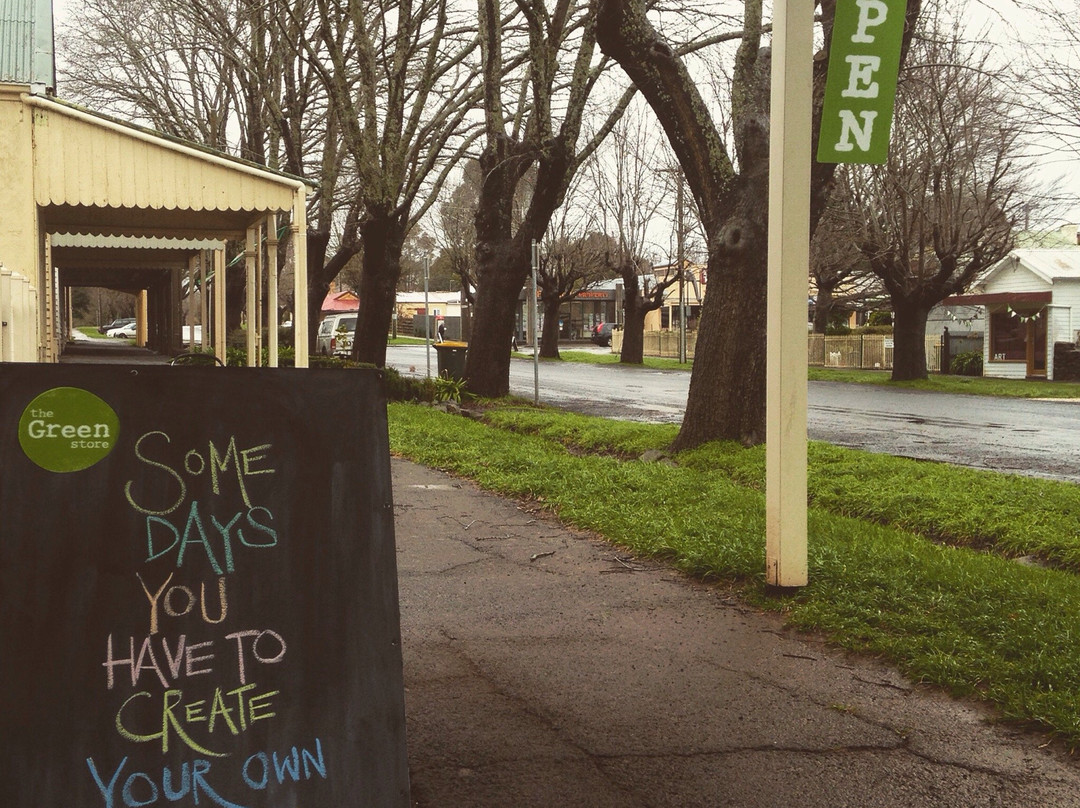 the
Green
store
SOME
DAYS
YOU
HAVE TO
CREATE
YOUR OWN
PEN
ART